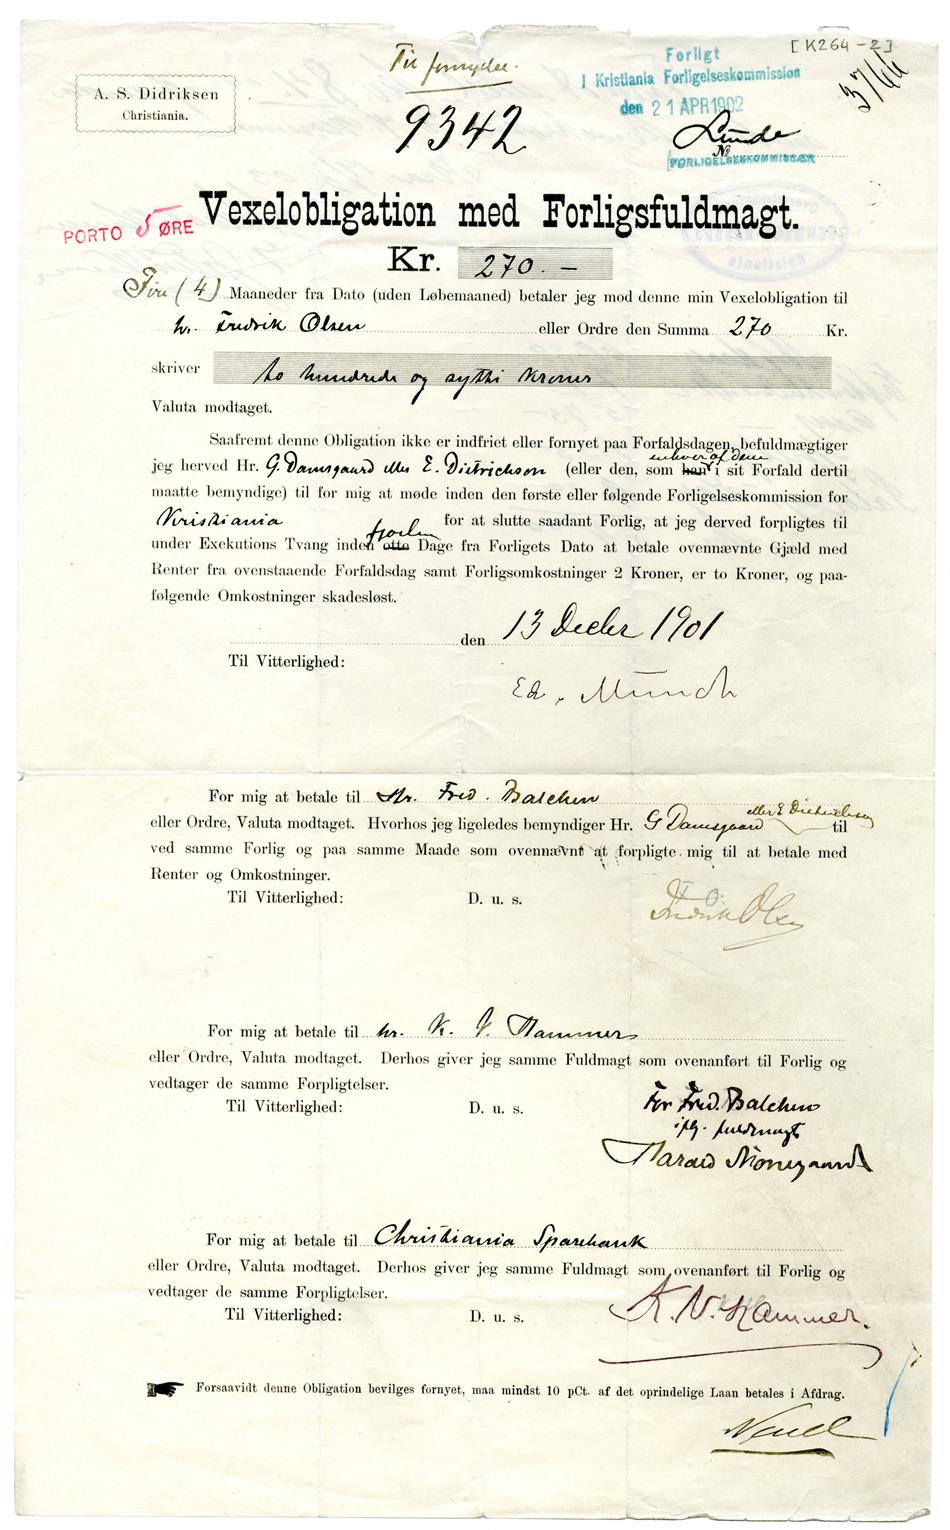 [K264-2]
Til fornyelse.
Forligt
I Kristiania Forligelseskommission
den 21 APR 1902
3766
A. S. Didriksen
Christiania.
9342
Lunde
No
FORLIGELSESKOMMISSÆR
Vexelobligation med Forligsfuldmagt.
PORTO 5 ØRE
Kr. 270.-
Fire (4) Maaneder fra Dato (uden Løbemaaned) betaler jeg mod denne min Vexelobligation til
hr. Fredrik Olsen eller Ordre den Summa 270 Kr.
skriver to hundrede og sytti Kroner
Valuta modtaget.
Saafremt denne Obligation ikke er indfriet eller fornyet paa Forfaldsdagen, befuldmægtiger
enhver af dem
jeg herved Hr. G. Damsgaard eller E. Dietrichson (eller den, som han i sit Forfald dertil
maatte bemyndige) til for mig at møde inden den første eller følgende Forligelseskommission for
Kristiania for at slutte saadant Forlig, at jeg derved forpligtes til
fjorten
under Exekutions Tvang inden otte Dage fra Forligets Dato at betale ovennævnte Gjæld med
Renter fra ovenstaaende Forfaldsdag samt Forligsomkostninger 2 Kroner, er to Kroner, og paa-
følgende Omkostninger skadesløst.
den 13 Decbr 1901
Til Vitterlighed:
Ed. Munch
For mig at betale til Hr. Fred. Balchen
eller E Dietrichson
eller Ordre, Valuta modtaget. Hvorhos jeg ligeledes bemyndiger Hr. G Damsgaard til
ved samme Forlig og paa samme Maade som ovennævnt at forpligte mig til at betale med
Renter og Omkostninger.
Til Vitterlighed: D. u. s.
Fredrik Olsen
For mig at betale til hr. K. V. Hammer
eller Ordre, Valuta modtaget. Derhos giver jeg samme Fuldmagt som ovenanført til Forlig og
vedtager de samme Forpligtelser.
Til Vitterlighed: D. u. s. For Fred. Balchen
iflg. fuldmagt
Harald Nørregaard
For mig at betale til Christiania Sparebank
eller Ordre, Valuta modtaget. Derhos giver jeg samme Fuldmagt som ovenanført til Forlig og
vedtager de samme Forpligtelser.
Til Vitterlighed: D. u. s. K. V. Hammer.
Forsaavidt denne Obligation bevilges fornyet, maa mindst 10 pCt. af det oprindelige Laan betales i Afdrag.